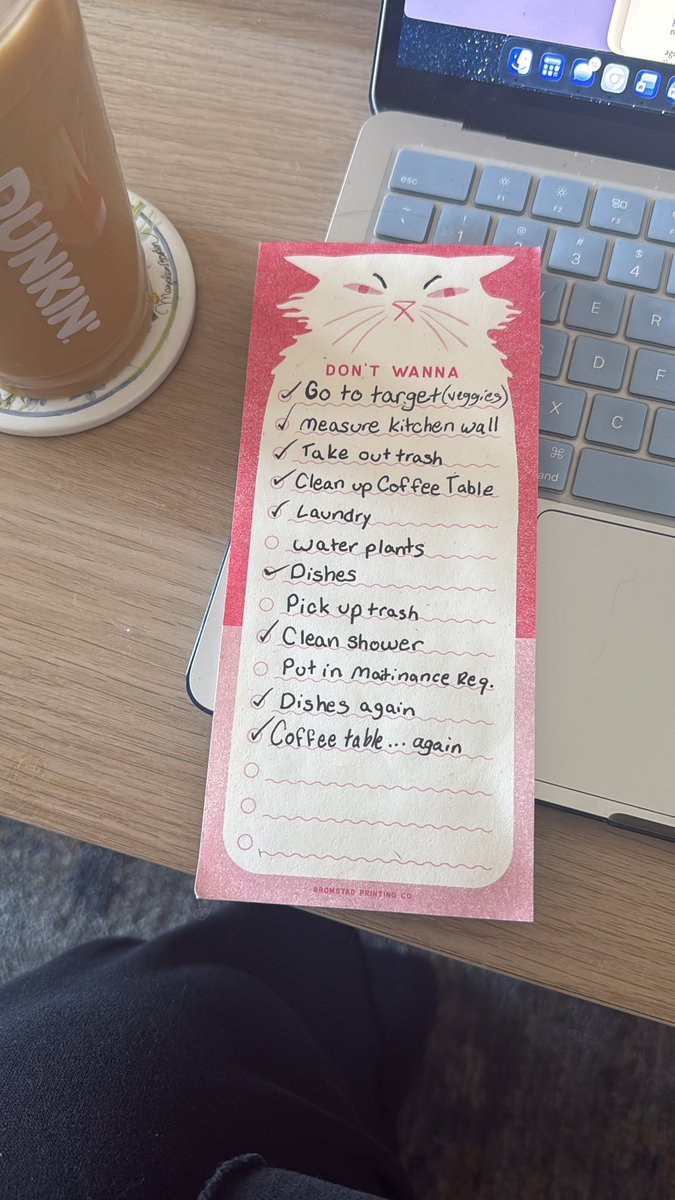 DUNKIN'
esc
F1
F2
F3
~
!
1
@
2
#
3
$
4
E
R
D
F
X
C
⌘
and
DON'T WANNA
Go to target (veggies)
measure kitchen wall
Take out trash
Clean up Coffee Table
Laundry
water plants
Dishes
Pick up trash
Clean shower
Put in Maitinance Req.
Dishes again
Coffee table... again
BROMSTAD PRINTING CO.